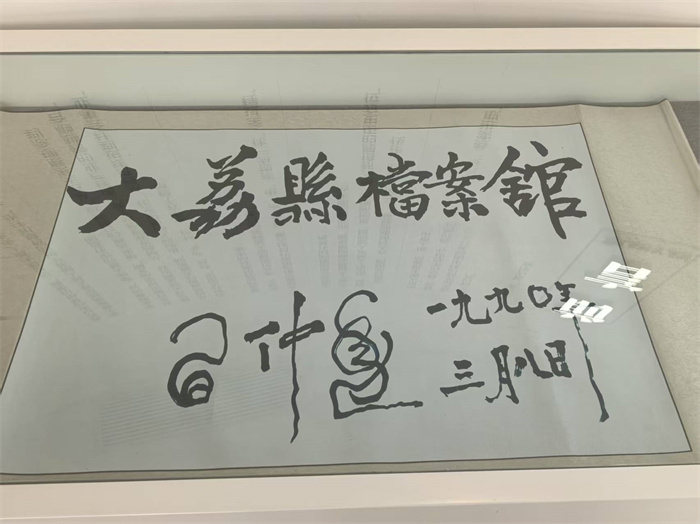 大荔縣檔案館
習仲勛
一九九〇年
三月八日